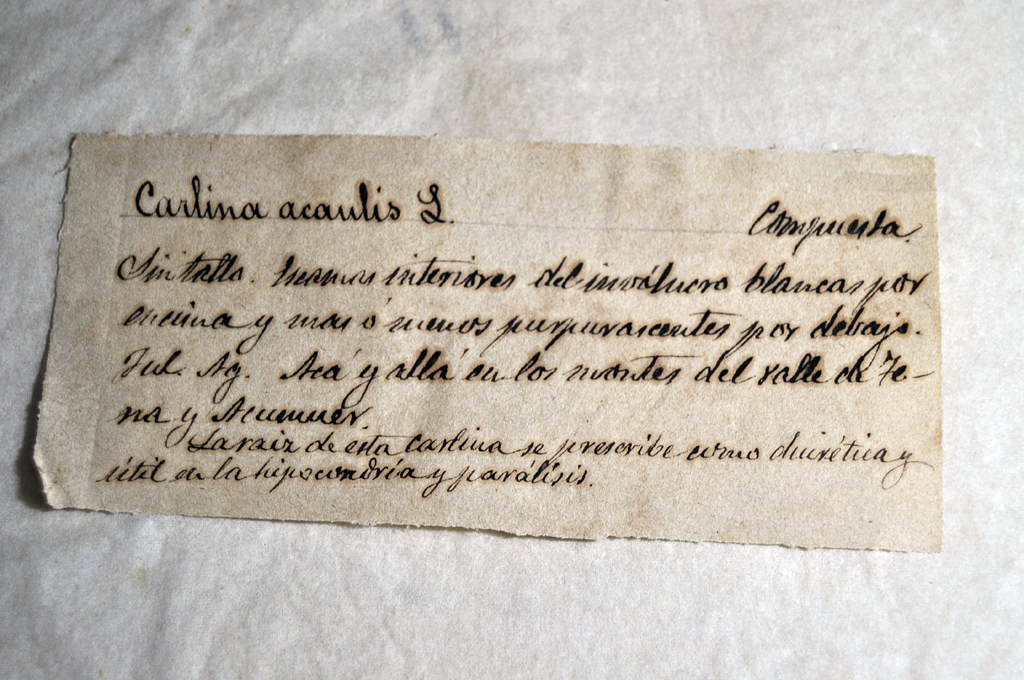 Carlina acaulis L.
Compuesta.
Sin tallo. Escamas interiores del involucro blancas por
encima y mas ó menos purpurascentes por debajo.
Jul. Ag. Acá y allá en los montes del valle de Te-
na y
La raiz de esta carlina se prescribe como diurética y
útil en la hipocondría y parálisis.